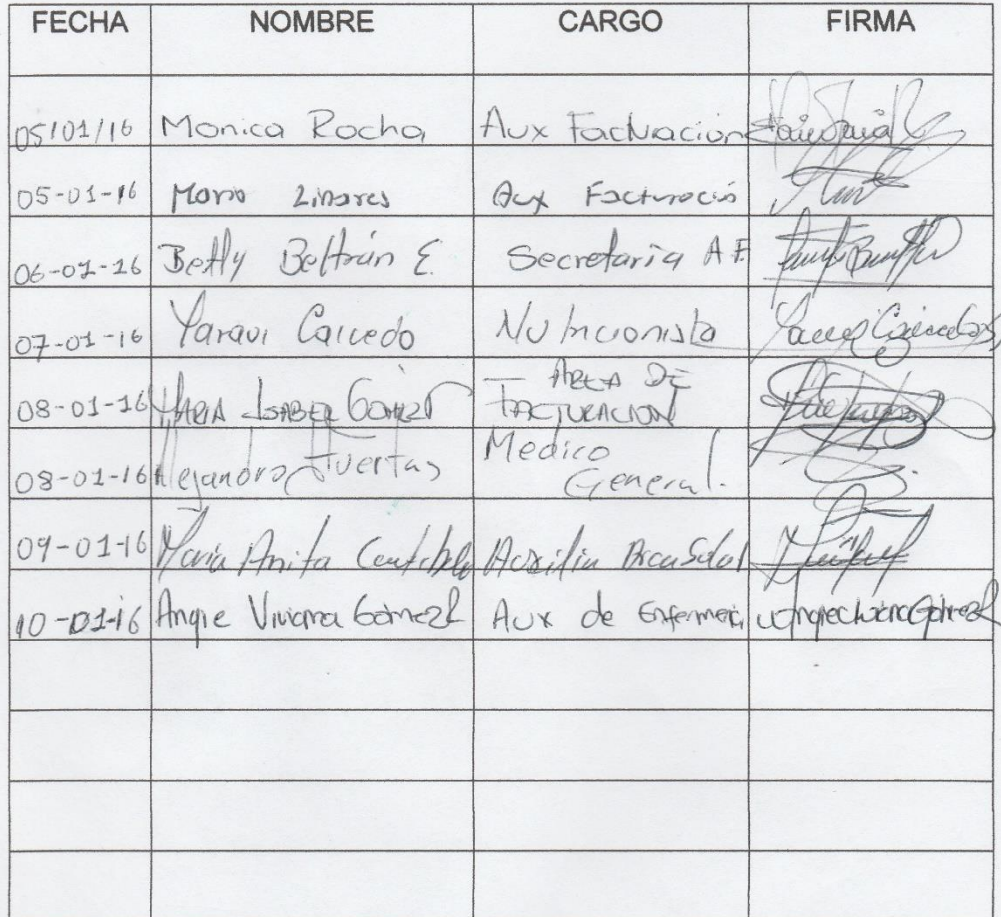 FECHA NOMBRE CARGO FIRMA
05/01/16 Monica Rocha Aux Facturación
05-01-16 Mario Linares Aux Facturación
06-01-16 Betty Beltrán E. Secretaria A.F.
07-01-16 Yaravi Caicedo Nutricionista
08-01-16 MARIA ISABEL GOMEZ AREA DE
FACTURACION
08-01-16 Alejandro Huertas Medico
General.
09-01-16 Maria Anita Auxiliar
10-01-16 Angie Viviana Gómez Aux de Enfermeri